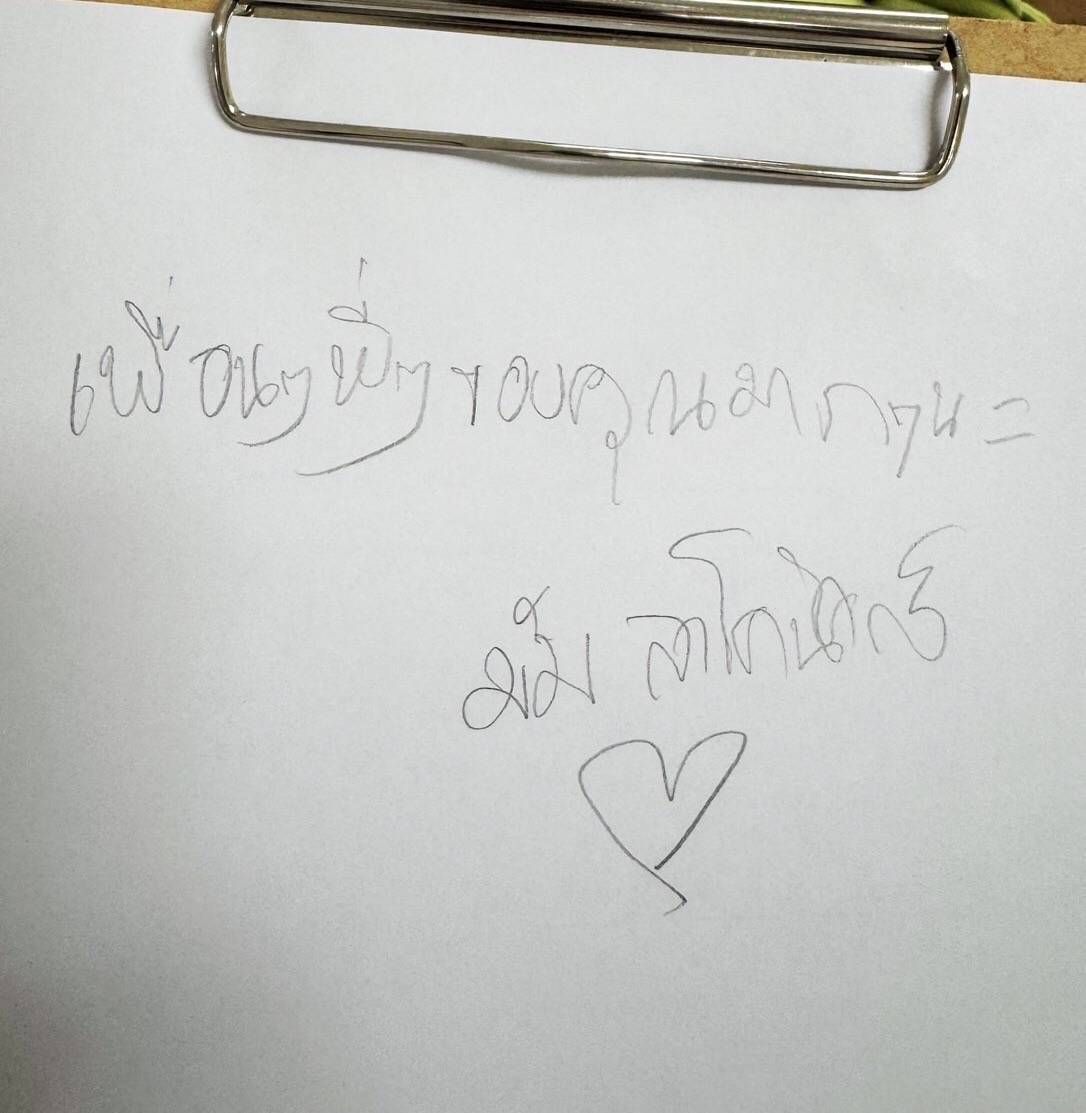 เพื่อนๆพี่ๆขอบคุณมากๆนะ
มัม ลาโคนิคส์